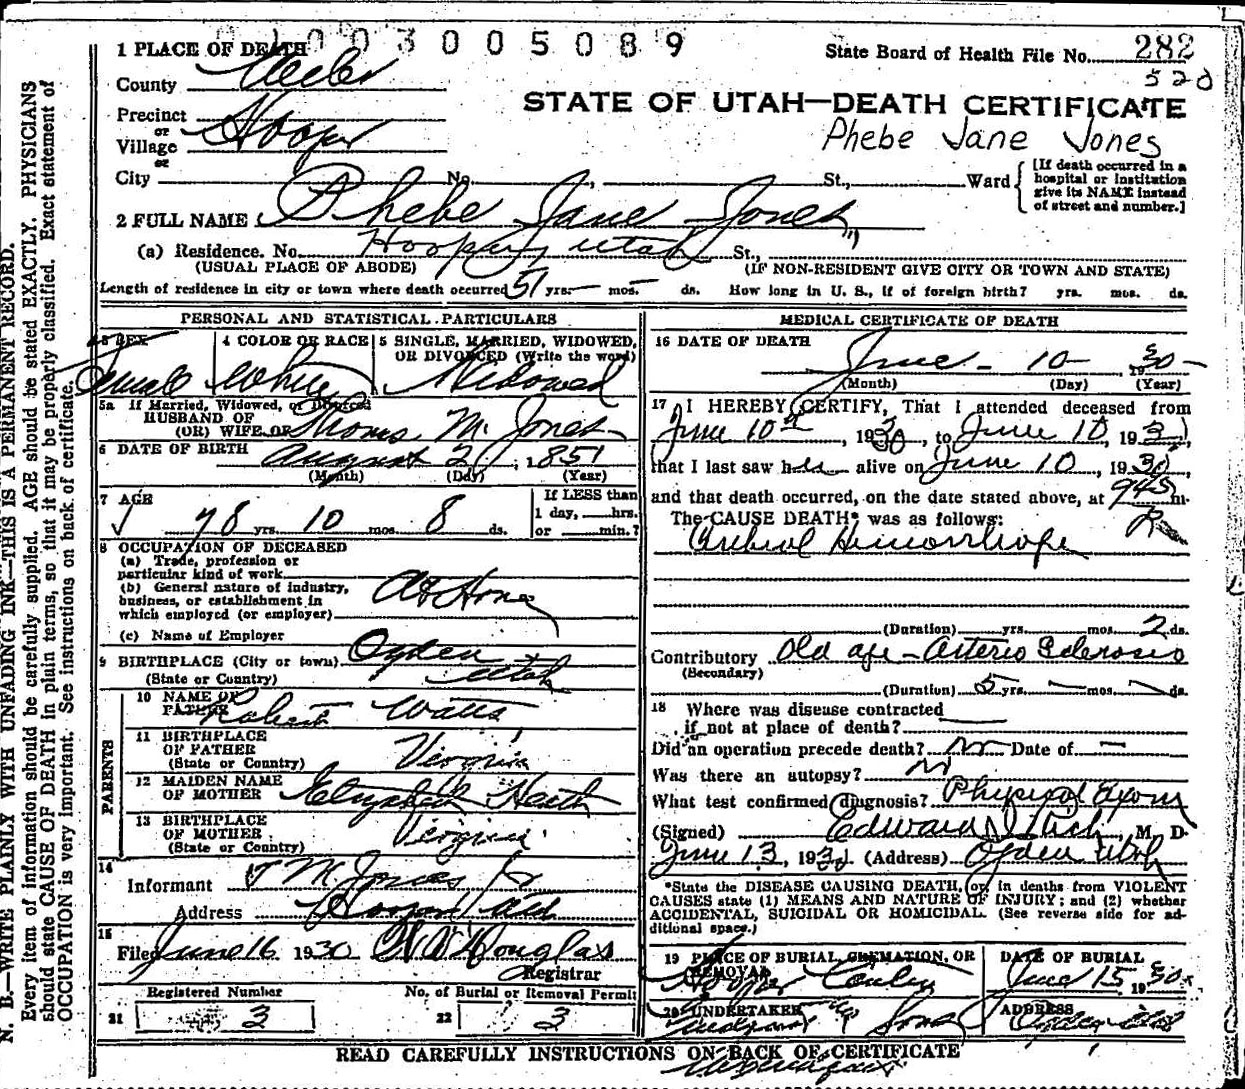 1003005089
1 PLACE OF DEATH
State Board of Health File No. 282
520
County Weber
STATE OF UTAH—DEATH CERTIFICATE
Precinct
or
Village Hooper
Phebe Jane Jones
or
City No. , St., Ward
[If death occurred in a
hospital or institution
give its NAME instead
of street and number.]
2 FULL NAME Phebe Jane Jones
(a) Residence. No. Hooper, Utah St.,
(USUAL PLACE OF ABODE) (IF NON-RESIDENT GIVE CITY OR TOWN AND STATE)
Length of residence in city or town where death occurred 51 yrs. — mos. — ds. How long in U. S., if of foreign birth? yrs. mos. ds.
PERSONAL AND STATISTICAL PARTICULARS
3 SEX
Female
4 COLOR OR RACE
White
5 SINGLE, MARRIED, WIDOWED,
OR DIVORCED (Write the word)
Widowed
5a If Married, Widowed, or Divorced
HUSBAND OF
(OR) WIFE OF Thomas M. Jones
6 DATE OF BIRTH August 2, 1851
(Month) (Day) (Year)
7 AGE
78 yrs. 10 mos. 8 ds.
If LESS than
1 day, hrs.
or min.?
8 OCCUPATION OF DECEASED
(a) Trade, profession or
particular kind of work
(b) General nature of industry,
business, or establishment in
which employed (or employer)
At Home
(c) Name of Employer
9 BIRTHPLACE (City or town) Ogden
(State or Country) Utah
PARENTS
10 NAME OF
FATHER Robert Watts
11 BIRTHPLACE
OF FATHER
(State or Country) Virginia
12 MAIDEN NAME
OF MOTHER Elizabeth
13 BIRTHPLACE
OF MOTHER
(State or Country) Virginia
14
Informant T M. Jones Jr
Address Hooper Utah
15
Filed June 16 1930 Douglas
Registrar
Registered Number
21 3
No. of Burial or Removal Permit
22 3
MEDICAL CERTIFICATE OF DEATH
16 DATE OF DEATH
June - 10 - 1930
(Month) (Day) (Year)
17 I HEREBY CERTIFY, That I attended deceased from
June 10, 1930, to June 10, 193
that I last saw her alive on June 10, 1930,
and that death occurred, on the date stated above, at 945 m.
The CAUSE DEATH* was as follows: P
Cerebral Hemorrhage
(Duration) yrs. mos. 2 ds.
Contributory Old age - Arterio Sclerosis
(Secondary)
(Duration) 5 yrs. — mos. — ds.
18 Where was disease contracted
if not at place of death?
Did an operation precede death? No Date of —
Was there an autopsy? No
What test confirmed diagnosis? Physical Exam
(Signed) Edward I. Rich, M. D.
June 13, 1930 (Address) Ogden Utah
*State the DISEASE CAUSING DEATH, or, in deaths from VIOLENT
CAUSES state (1) MEANS AND NATURE OF INJURY; and (2) whether
ACCIDENTAL, SUICIDAL OR HOMICIDAL. (See reverse side for ad-
ditional space.)
19 PLACE OF BURIAL, CREMATION, OR
REMOVAL
Hooper
DATE OF BURIAL
June 15 1930
20 UNDERTAKER
Sons
ADDRESS
Ogden Utah
READ CAREFULLY INSTRUCTIONS ON BACK OF CERTIFICATE
N. B.—WRITE PLAINLY WITH UNFADING INK—THIS IS A PERMANENT RECORD.
Every item of information should be carefully supplied. AGE should be stated EXACTLY. PHYSICIANS
should state CAUSE OF DEATH in plain terms, so that it may be properly classified. Exact statement of
OCCUPATION is very important. See instructions on back of certificate.